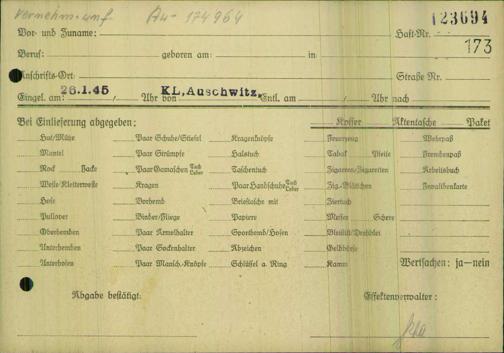 Au- 174964 123694
Vor- und Zuname: Haft-Nr.
173
Beruf: geboren am: in
Anschrifts-Ort: Straße Nr.
Eingel. am: 26.1.45 Uhr von KL, Auschwitz, Entl. am Uhr nach
Bei Einlieferung abgegeben: Koffer Aktentasche Paket
Hut/Mütze Paar Schuhe/Stiefel Kragenknöpfe Feuerzeug Wehrpaß
Mantel Paar Strümpfe Halstuch Tabak Pfeife Fremdenpaß
Rock Jacke Paar Gamaschen Tuch Leder Taschentuch Zigarren/Zigaretten Arbeitsbuch
Weste/Kletterweste Kragen Paar Handschuhe Tuch Leder Zig.-Blättchen Invalidenkarte
Hose Vorhemd Brieftasche mit Ziertuch
Pullover Binder/Fliege Papiere Messer Schere
Oberhemden Paar Ärmelhalter Sporthemd/Hosen Bleistift/Drehblei
Unterhemden Paar Sockenhalter Abzeichen Geldbörse
Unterhosen Paar Mansch.-Knöpfe Schlüssel a. Ring Kamm Wertsachen: ja—nein
Abgabe bestätigt: Effektenverwalter: